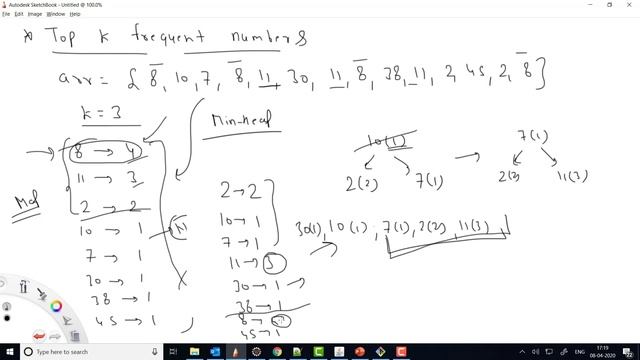 Autodesk SketchBook - Untitled @ 100.0%
File Edit Image Window Help
* Top k frequent numbers
arr = { 8, 10, 7, 8, 11, 30, 11, 8, 38, 11, 2, 45, 2, 8 }
k = 3
Min-heap
8 → 4
11 → 3
2 → 2
10 → 1
7 → 1
30 → 1
38 → 1
45 → 1
Map
N
2 → 2
10 → 1
7 → 1
11 → 3
30 → 1
38 → 1
8 →
45 → 1
10(1)
2(2) 7(1)
7(1)
2(2) 11(3)
30(1), 10(1), 7(1), 2(2), 11(3)
Type here to search
ENG
17:19
08-04-2020